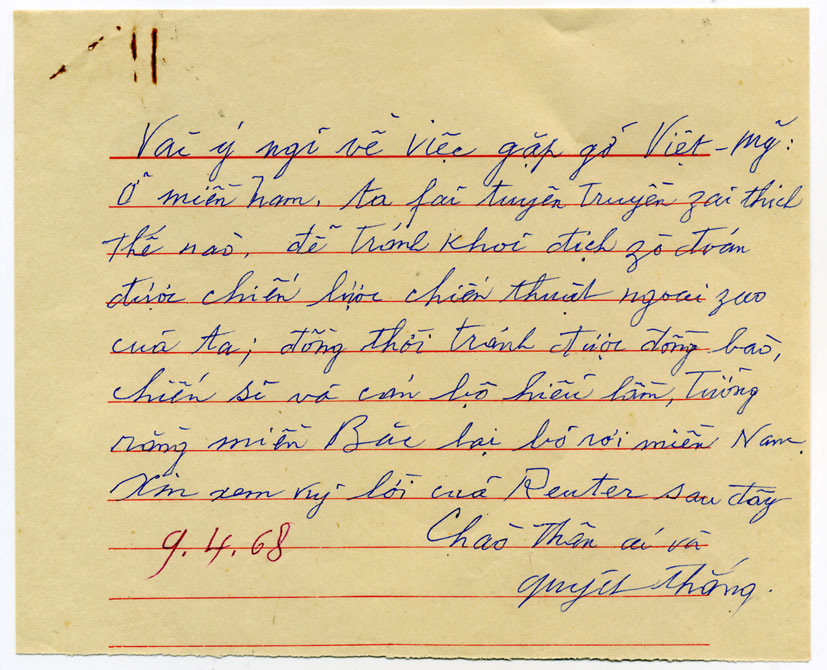 Vài ý ngĩ về việc gặp gỡ Việt - Mỹ:
Ở miền nam, ta fải tuyên truyền zải thích
thế nào, để tránh khỏi địch zự đoán
được chiến lược chiến thuật ngoại zao
của ta; đồng thời tránh được đồng bào,
chiến sĩ và cán bộ hiểu lầm, tưởng
rằng miền Bắc lại bỏ rơi miền Nam.
Xin xem kỹ lời của Reuter sau đây
9.4.68 Chào thân ái và
quyết thắng.